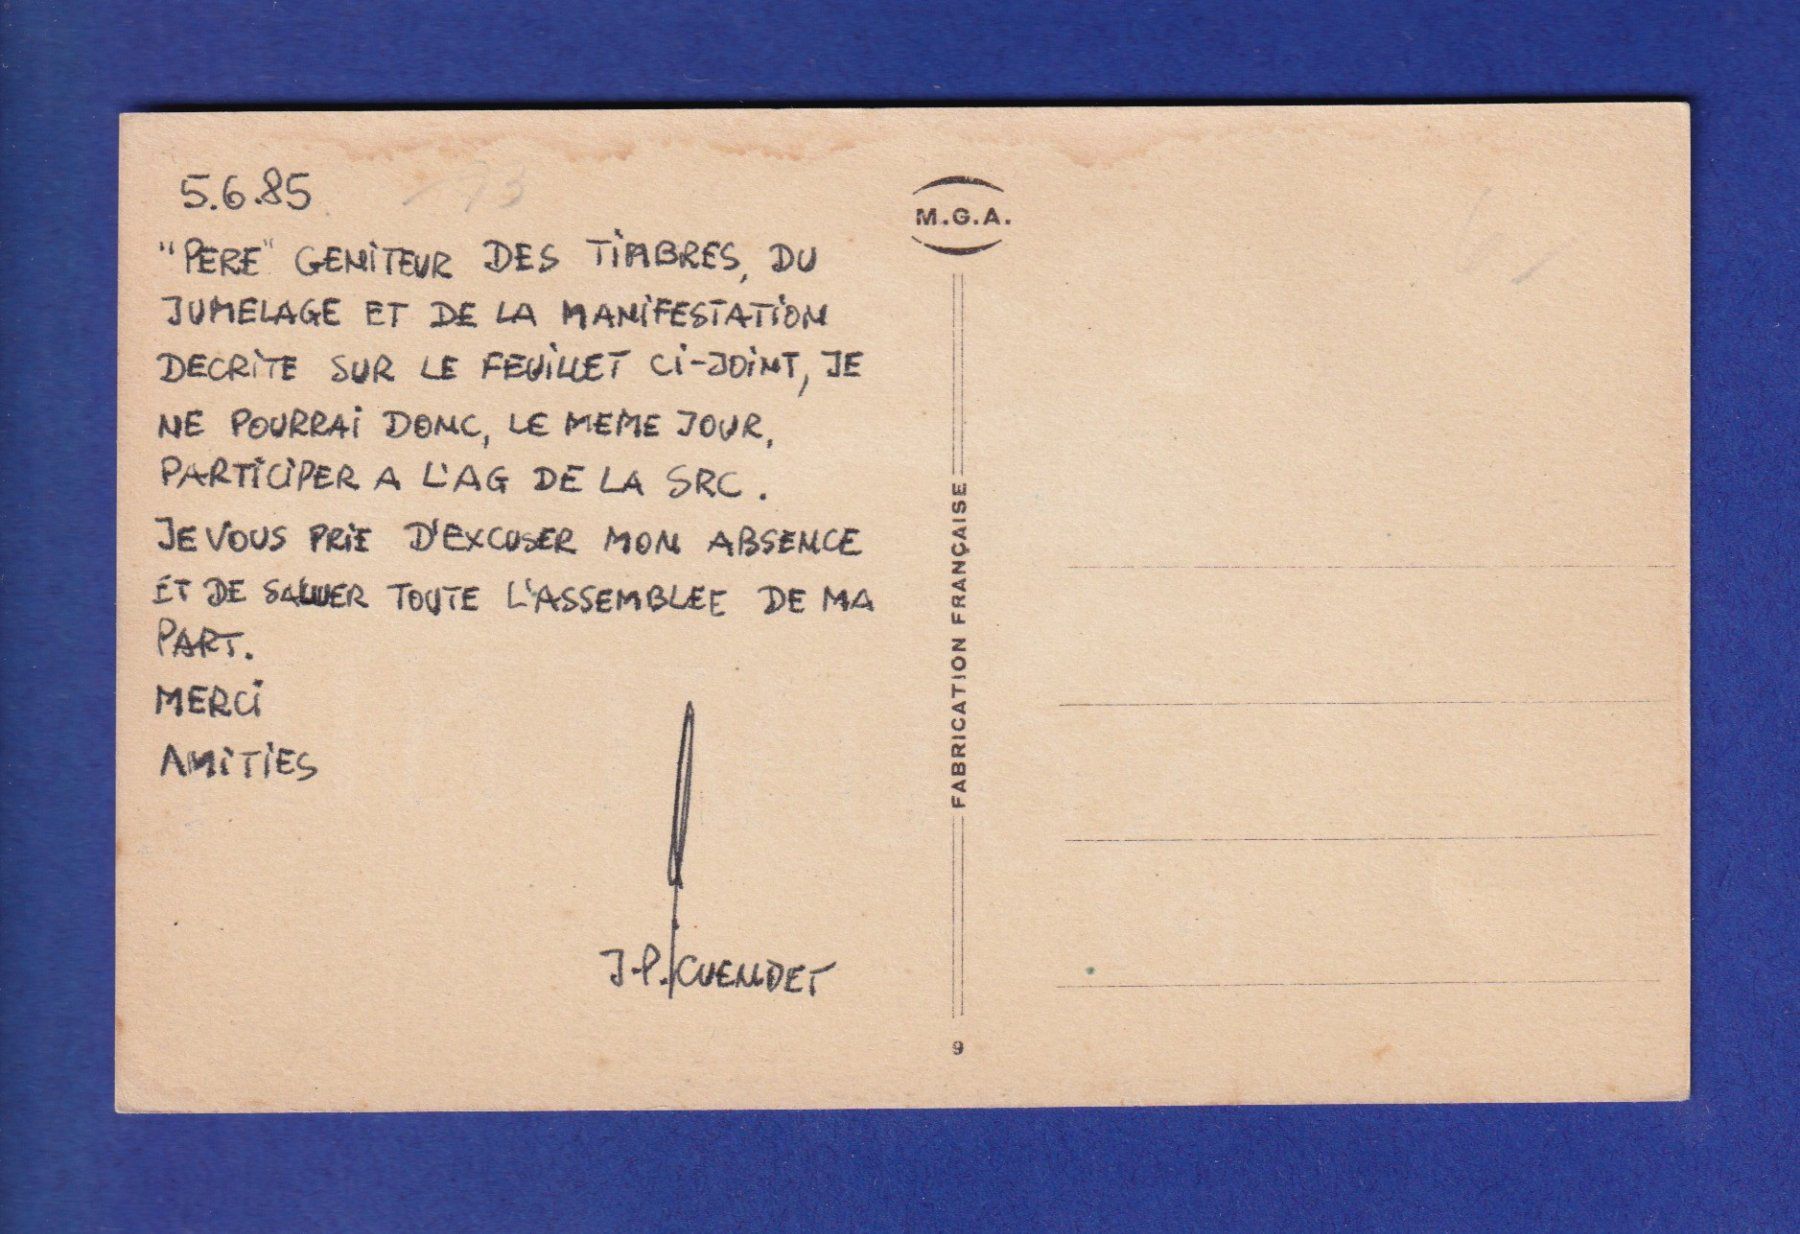 5.6.85
"PERE" GENITEUR DES TIMBRES, DU
JUMELAGE ET DE LA MANIFESTATION
DECRITE SUR LE FEUILLET CI-JOINT, JE
NE POURRAI DONC, LE MEME JOUR,
PARTICIPER A L'AG DE LA SRC.
JE VOUS PRIE D'EXCUSER MON ABSENCE
ET DE SALUER TOUTE L'ASSEMBLEE DE MA
PART.
MERCI
AMITIES
J-P. CUENDET
M.G.A.
FABRICATION FRANÇAISE
9